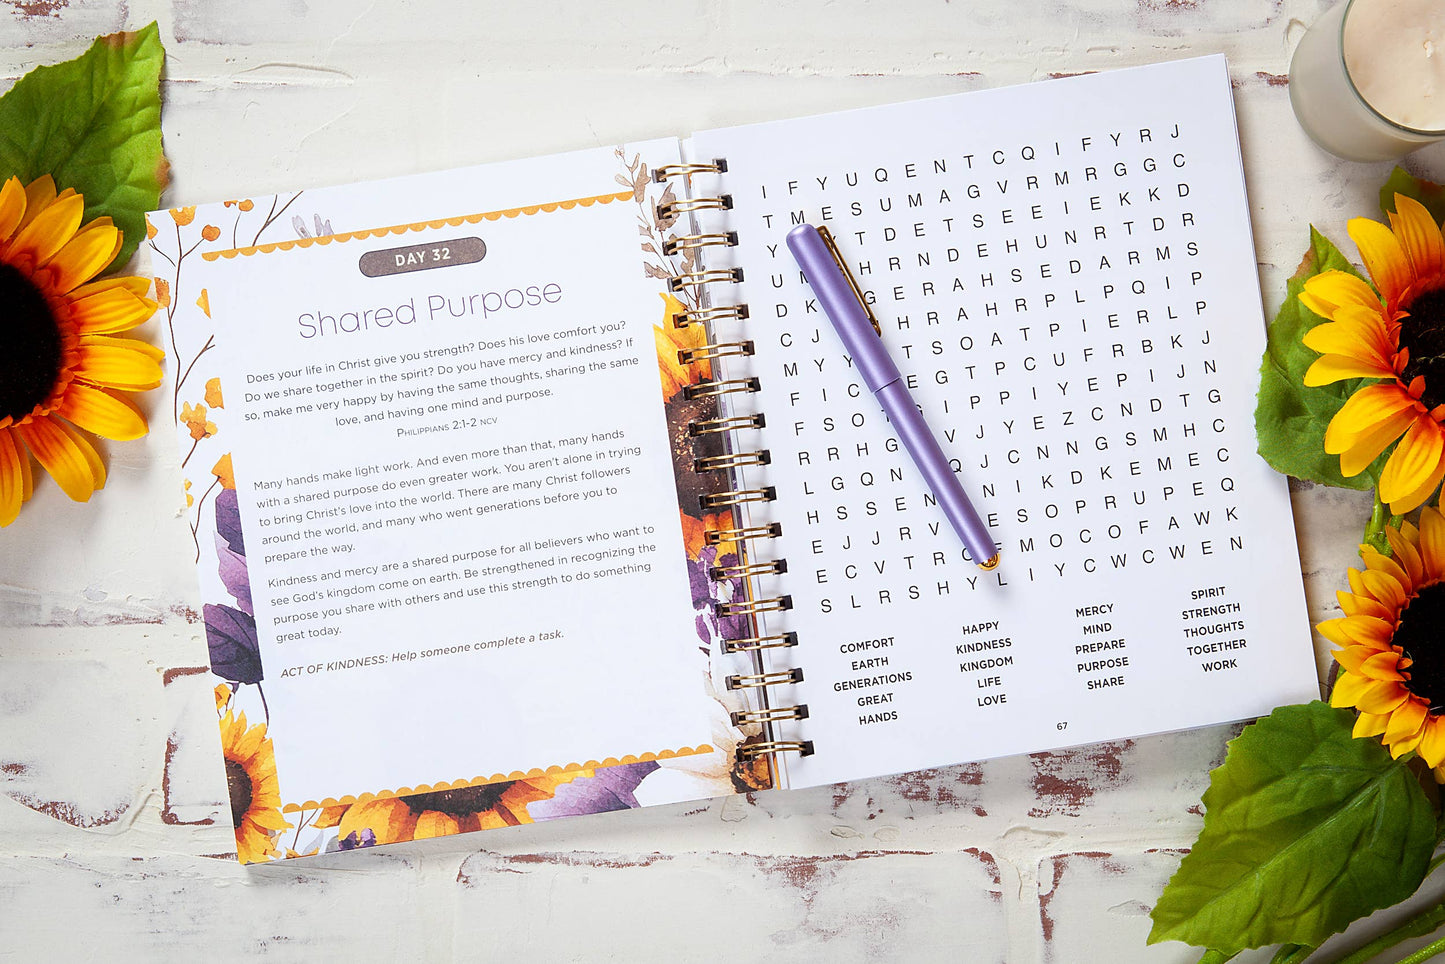 DAY 32
Shared Purpose
Does your life in Christ give you strength? Does his love comfort you?
Do we share together in the spirit? Do you have mercy and kindness? If
so, make me very happy by having the same thoughts, sharing the same
love, and having one mind and purpose.
Philippians 2:1-2 NCV
Many hands make light work. And even more than that, many hands
with a shared purpose do even greater work. You aren't alone in trying
to bring Christ's love into the world. There are many Christ followers
around the world, and many who went generations before you to
prepare the way.
Kindness and mercy are a shared purpose for all believers who want to
see God's kingdom come on earth. Be strengthened in recognizing the
purpose you share with others and use this strength to do something
great today.
ACT OF KINDNESS: Help someone complete a task.
I F Y U Q E N T C Q I F Y R J
T M E S U M A G V R M R G G C
Y T D E T S E E I E K K D
U H R N D E H U N R T D R
D K G E R A H S E D A R M S
C J H R A H R P L P Q I P
M Y Y T S O A T P I E R L P
F I C E G T P C U F R B K J
F S O I P P I Y E P I J N
R R H G V J Y E Z C N D T G
L G Q N Q J C N N G S M H C
H S S E N I K D K E M E C
E J J R V E S O P R U P E Q
E C V T R O F M O C O F A W K
S L R S H Y L I Y C W C W E N
COMFORT
EARTH
GENERATIONS
GREAT
HANDS
HAPPY
KINDNESS
KINGDOM
LIFE
LOVE
MERCY
MIND
PREPARE
PURPOSE
SHARE
SPIRIT
STRENGTH
THOUGHTS
TOGETHER
WORK
67